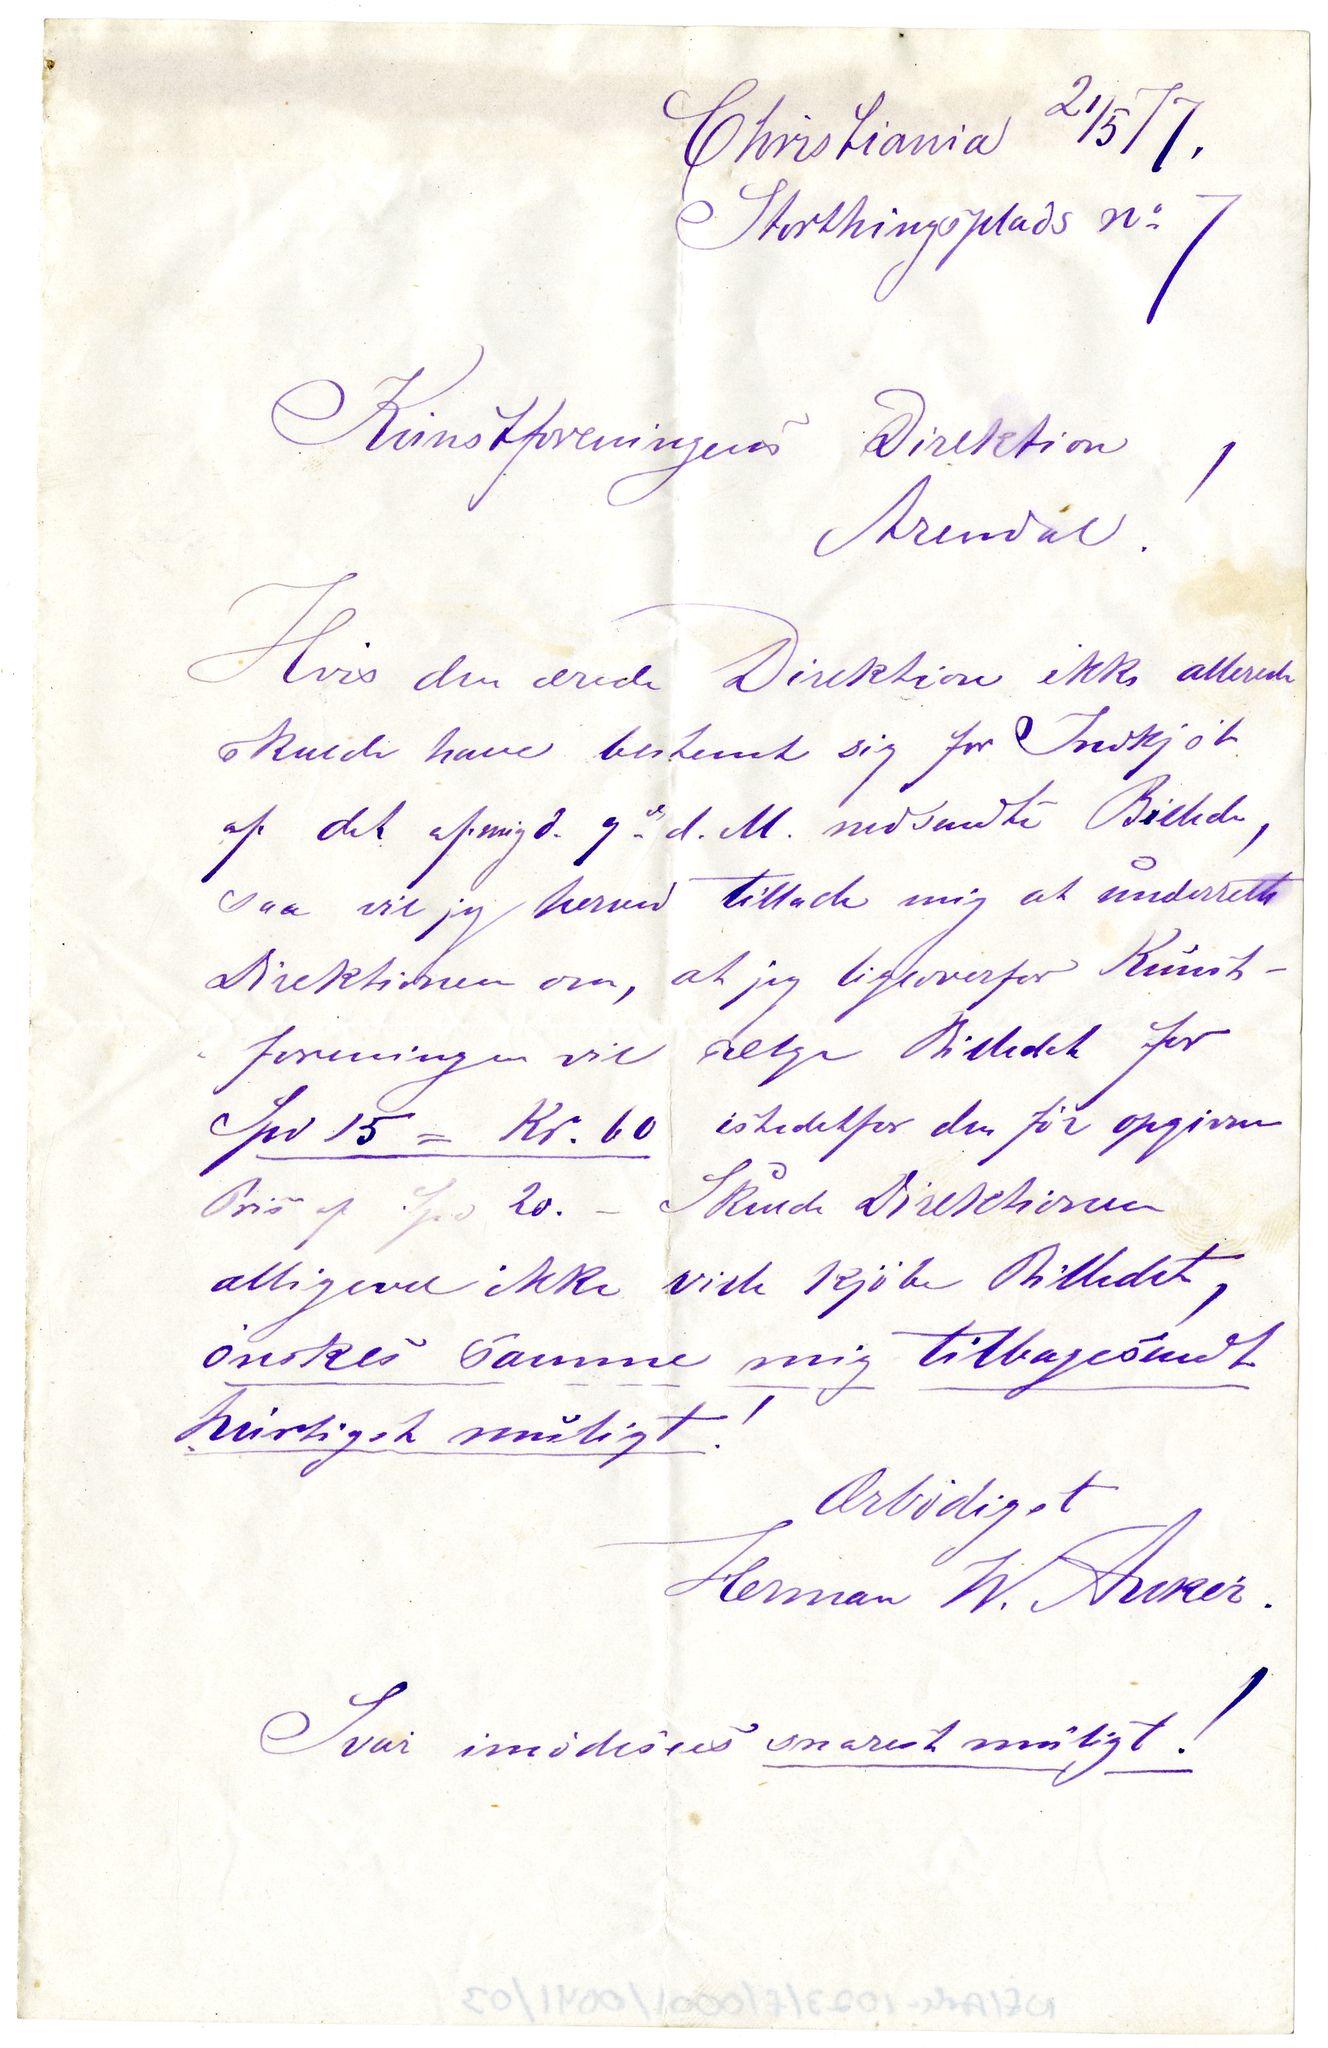 Christiania 21/5 77.
Storthingsplads no 7
Kunstforeningens Direktion
Arendal!
Hvis den ærede Direktion ikke allerede
skulde have bestemt sig for Indkjöb
af det af mig d. 9de d. M. nedsendte Billede,
saa vil jeg herved tillade mig at underrette
Direktionen om, at jeg ligeoverfor Kunst-
foreningen vil sælge Billedet for
Spd 15 = Kr. 60 istedetfor den för opgivne
Pris af Spd 20. – Skulde Direktionen
alligevel ikke ville kjöbe Billedet,
önskes samme mig tilbagesendt
hurtigst muligt!
Ærbödigst
Herman W. Anker.
Svar imödesees snarest muligt!